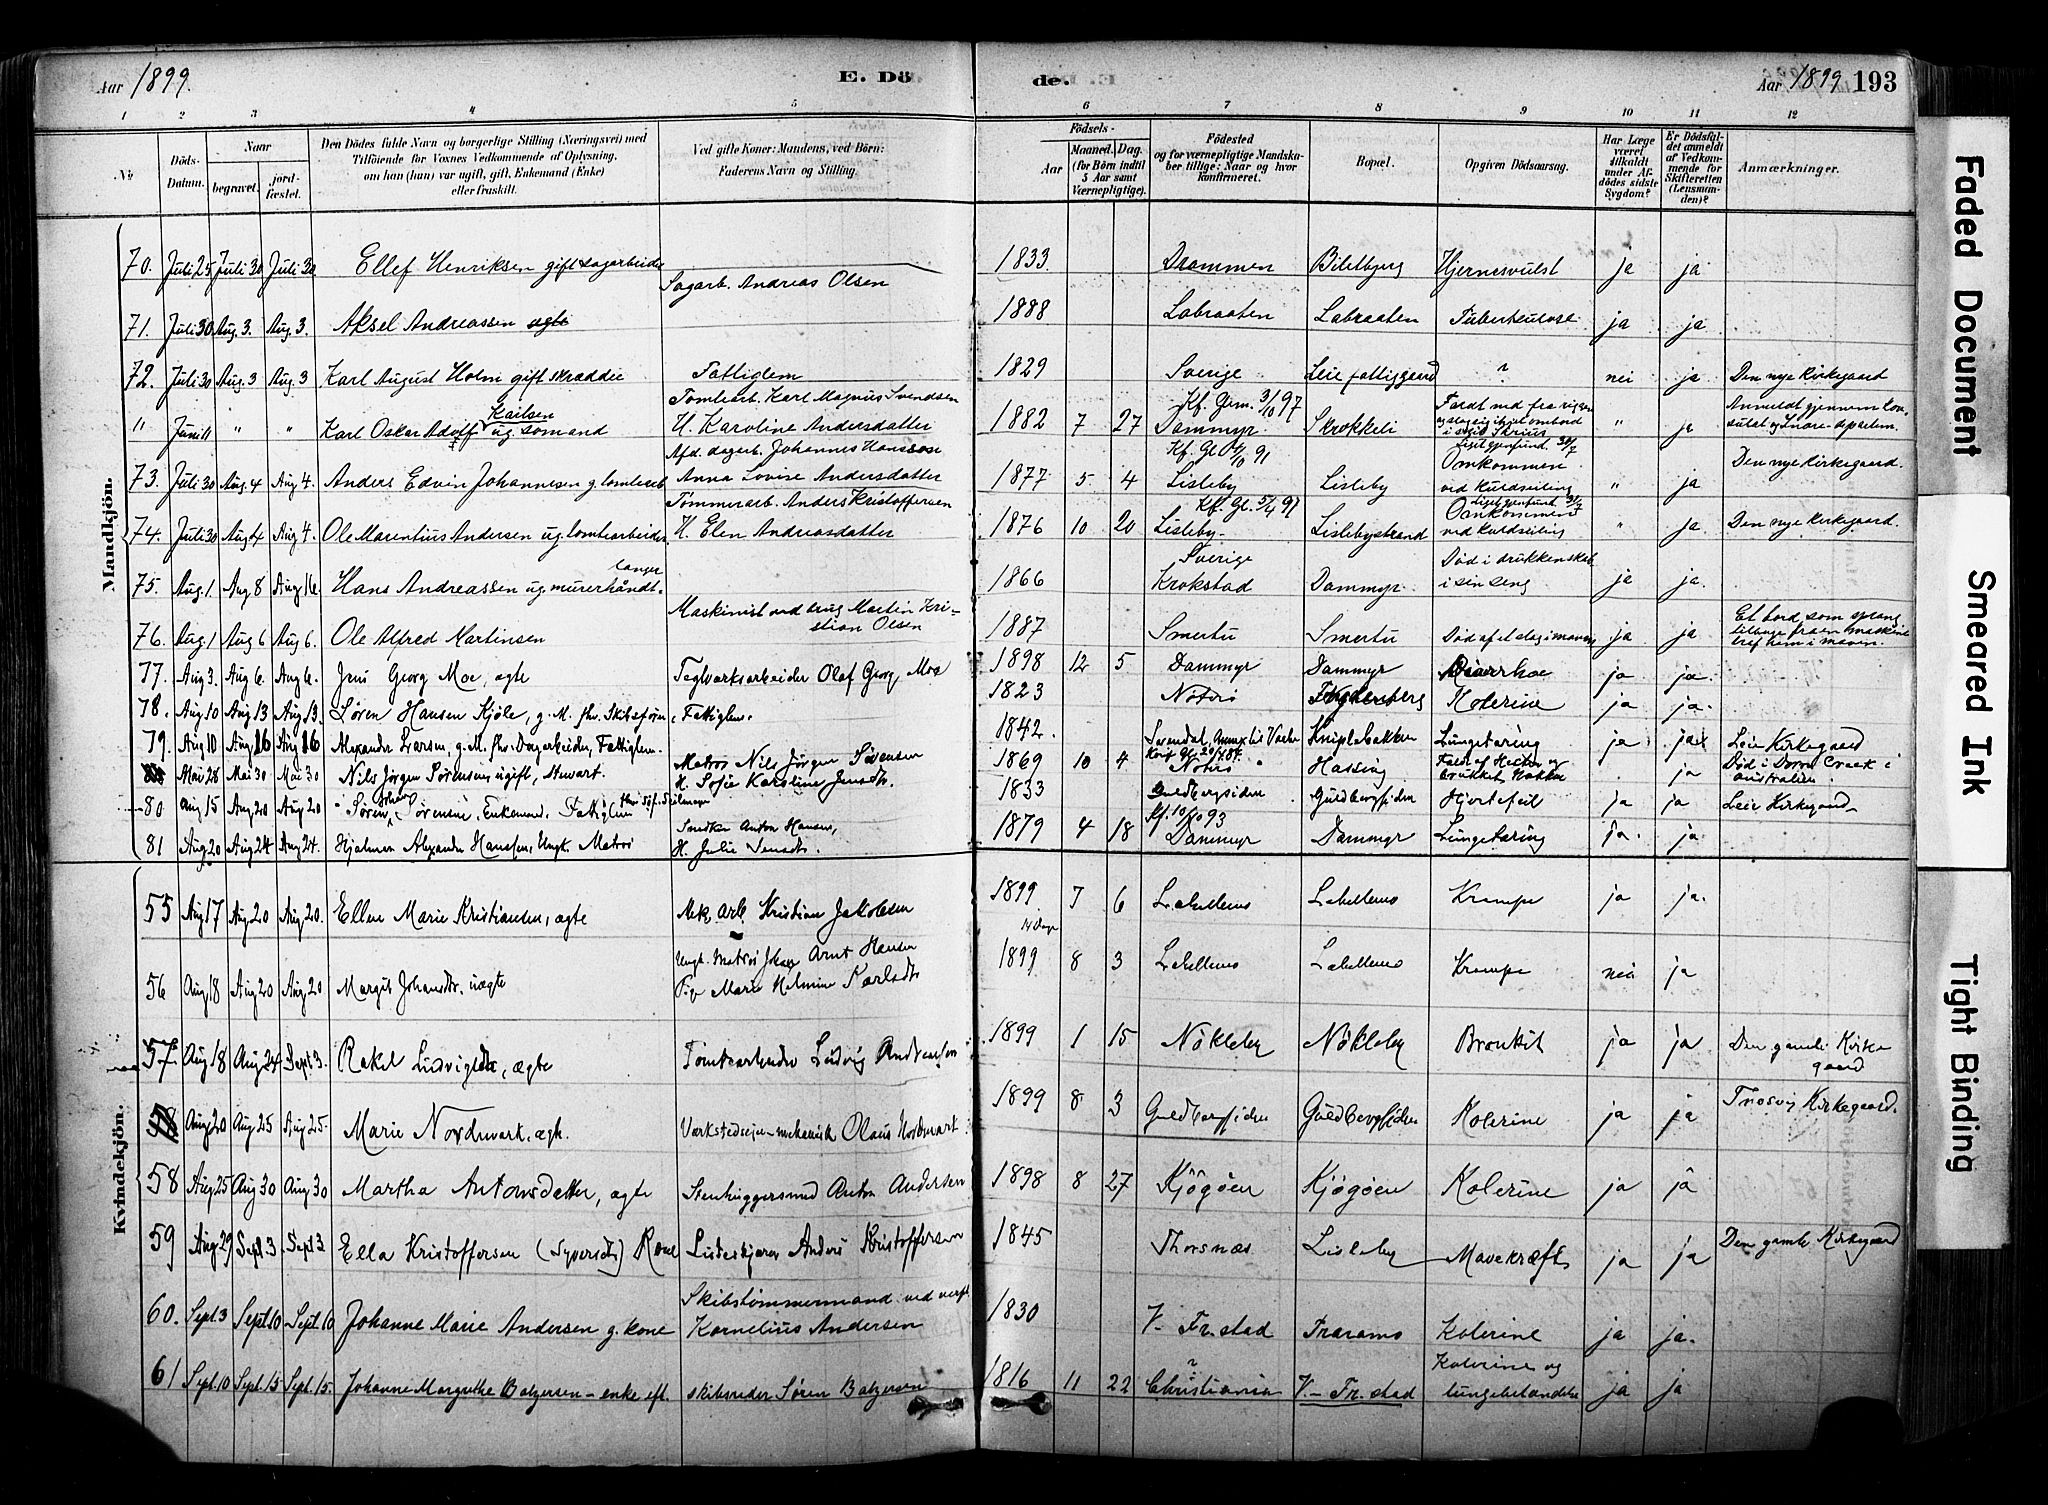 Aar 1899.
E. Dö
de.
Aar 1899 193
1 2 3 4 5 6 7 8 9 10 11 12
No
Döds-Datum.
Naar begravet. jordfæstet.
Den Dödes fulde Navn og borgerlige Stilling (Næringsvei) med Tilföiende för Voxnes Vedkommende af Oplysning, om han (hun) var ugift, gift, Enkemand (Enke) eller fraskilt.
Ved gifte Koner: Mandens, ved Börn: Faderens Navn og Stilling.
Födsels- Aar Maaned. Dag. (for Börn indtil 5 Aar samt Værnepligtige).
Födested og for værnepligtige Mandskaber tillige: Naar og hvor konfirmeret.
Bopæl.
Opgiven Dödsaarsag.
Har Læge været tilkaldt under Afdödes sidste Sygdom?
Er Dödsfaldet anmeldt af Vedkommende for Skifteretten (Lensmanden)?
Anmærkninger.
Mandkjön.
70. Juli 25 Juli 30 Juli 30 Ellef Henriksen gift sagarbeider 1833 Drammen Biletbjerg Hjernesvulst ja ja
71. Juli 30 Aug. 3. Aug. 3. Aksel Andreassen ægte Sagarb. Andreas Olsen 1888 Labraaten Labraaten Tuberkulose ja ja
72. Juli 30 Aug. 3 Aug. 3 Karl August Holm gift skrædder Fattiglem 1829 Sverige Leie fattiggaard ? nei ja Den nye Kirkegaard
" Juni 11 " " Karl Oskar Adolf Karlsen ug. sømand Tomtearb. Karl Magnus Svendsen H. Karoline Andersdatter 1882 7 27 Kf. Grm. 3/10 97 Dammyr Skrokkeli Faldt ned fra riggen " ja Anmeldt gjennem
73. Juli 30 Aug. 4 Aug 4. Anders Edvin Johannesen g. tomtearb. Afd. dagarb. Johannes Hansson Anna Lovise Andersdatter 1877 5 4 Kf. Gl 4/10 91 Lisleby Lisleby Liget gjenfund. 31/7 Omkommen ved kuldseiling " ja Den nye Kirkegaard.
74. Juli 30 Aug 4 Aug 4. Ole Marentius Andersen ug. tomtearbeider Tømmerarb. Anders Kristoffersen H. Elen Andreasdatter 1876 10 20 Kf. Gl. 5/4 91 Lisleby Lislebystrand Liget gjenfund. 31/7 Omkommen ved kuldseiling " ja Den nye Kirkegaard.
75. Aug. 1. Aug 8 Aug 16. Hans Andreassen ug. murerhåndtlanger 1866 Sverige Krokstad Dammyr Død i drukkenskab i sin seng ja ja.
76. Aug. 1 Aug 6 Aug 6. Ole Alfred Martinsen Maskinist Martin Kristian Olsen 1887 Smertu Smertu Død af et slag i maven ja ja Et bord, som sprang tilbage fra en maskine traf ham i maven.
77. Aug 3. Aug 6. Aug 6. Jens Georg Moe, ægte Teglværksarbeider Olaf Georg Moe 1898 12 5 Dammyr Dammyr Diarrhoe ja ja.
78. Aug 10 Aug 13 Aug 13. Søren Hansen Kjøle, g. M. fhv. Skibsfører Fattiglem. 1823 Nøterø Kolerine ja ja.
79. Aug 10 Aug 16 Aug 16 Alexander Larsen, g. M. fhv. Dagarbeider, Fattiglem. 1842. Kniplebakken Lungetæring ja ja Leie Kirkegaard
Mai 28 Mai 30 Mai 30 Nils Jørgen Sørensen ugift, Stuvart. Matros Nils Jørgen Sørensen H. Sofie Karoline Jensdtr. 1869 10 4 Nøterø Hassing brukket Nakken ja Død i Creek i Australien.
80 Aug 15 Aug 20 Aug 20 Søren Johan Sørensen, Enkemand, Fattiglem 1833 Guldbergsiden Guldbergsiden Hjertefeil ja ja Leie Kirkegaard
81 Aug 20 Aug 24 Aug 24. Hjalmar Alexander Hansen, Ungk. Matros Smed Anton Hansen, H. Julie Jensdtr. 1879 4 18 Kf. 10/10 93 Dammyr Dammyr Lungetæring ja. ja.
Kvindekjön.
55 Aug 17 Aug 20 Aug 20. Ellen Marie Kristiansen, ægte Mek. Arb. Kristian Jakobsen 1899 7 6 Labellens Labellens Krampe ja ja.
56 Aug 18 Aug 20 Aug 20 Margit Johansdtr. uægte Ungk. Matros Johan Arnt Hansen Pige Marie Helmine Karlsdtr. 14 Dage 1899 8 3 Labellens Labellens Krampe nei ja
57. Aug 18 Aug 24 Sept 3. Rakel Ludvigsdtr., ægte Tomtearbeider Ludvig Andreassen 1899 1 15 Nökleby Nökleby Bronkit ja ja Den gamle Kirkegaard
58 Aug 20 Aug 25 Aug 25. Marie Nordmart, ægte. Værkstedseier mekanisk Olaus Nordmart 1899 8 3 Guldbergsiden Guldbergsiden Kolerine ja ja Trosvig Kirkegaard.
58 Aug 25 Aug 30 Aug 30 Martha Antonsdatter, ægte Stenhuggersmed Anton Andersen 1898 8 27 Kjøgøen Kjøgøen Kolerine ja ja
59 Aug 29 Sept. 3 Sept. 3 Ella Kristoffersen (Syversdtr) Kone Anders Kristoffersen 1845 Thorsnæs Lisleby Mavekræft ja ja Den gamle Kirkegaard
60. Sept. 3 Sept. 10 Sept. 10 Johanne Marie Andersen g. kone Skibstømmermand ved verft. Kornelius Andersen 1830 V- Fr.stad Traramo Kolerine ja ja.
61 Sept. 10 Sept. 15 Sept. 15. Johanne Margrethe Balzersen - enke eft. skibsreder Søren Balzersen 1816 11 22 ? Christiania V- Fr. stad Kolerine og lungebetændelse ja ja
Faded Document
Smeared Ink
Tight Binding